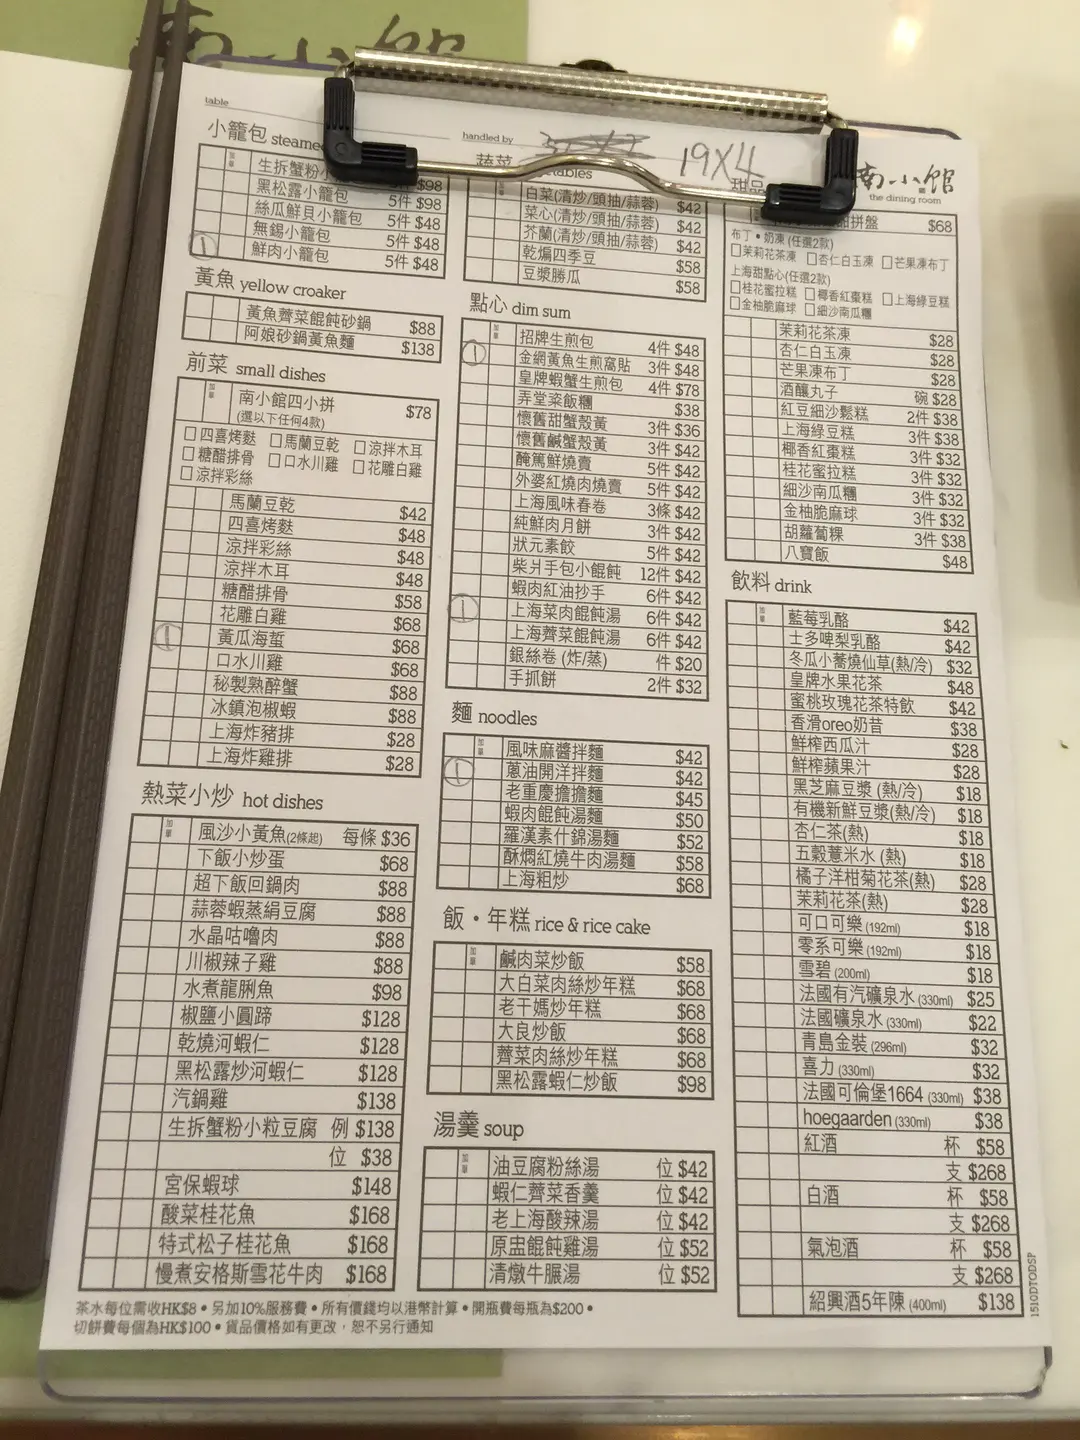 南小館
table
handled by
19X4
南小館
the dining room
小籠包 steamed
加單
生拆蟹粉小 $98
黑松露小籠包 5件 $98
絲瓜鮮貝小籠包 5件 $48
無錫小籠包 5件 $48
① 鮮肉小籠包 5件 $48
黃魚 yellow croaker
黃魚薺菜餛飩砂鍋 $88
阿娘砂鍋黃魚麵 $138
前菜 small dishes
加單
南小館四小拼 $78
(選以下任何4款)
□四喜烤麩 □馬蘭豆乾 □涼拌木耳
□糖醋排骨 □口水川雞 □花雕白雞
□涼拌彩絲
馬蘭豆乾 $42
四喜烤麩 $48
涼拌彩絲 $48
涼拌木耳 $48
糖醋排骨 $58
花雕白雞 $68
① 黃瓜海蜇 $68
口水川雞 $68
秘製熟醉蟹 $88
冰鎮泡椒蝦 $88
上海炸豬排 $28
上海炸雞排 $28
熱菜小炒 hot dishes
加單
風沙小黃魚(2條起) 每條 $36
下飯小炒蛋 $68
超下飯回鍋肉 $88
蒜蓉蝦蒸絹豆腐 $88
水晶咕嚕肉 $88
川椒辣子雞 $88
水煮龍脷魚 $98
椒鹽小圓蹄 $128
乾燒河蝦仁 $128
黑松露炒河蝦仁 $128
汽鍋雞 $138
生拆蟹粉小粒豆腐 例 $138
位 $38
宮保蝦球 $148
酸菜桂花魚 $168
特式松子桂花魚 $168
慢煮安格斯雪花牛肉 $168
蔬菜 tables
白菜(清炒/頭抽/蒜蓉) $42
菜心(清炒/頭抽/蒜蓉) $42
芥蘭(清炒/頭抽/蒜蓉) $42
乾煸四季豆 $58
豆漿勝瓜 $58
點心 dim sum
加單
招牌生煎包 4件 $48
① 金網黃魚生煎窩貼 3件 $48
皇牌蝦蟹生煎包 4件 $78
弄堂粢飯糰 $38
懷舊甜蟹殼黃 3件 $36
懷舊鹹蟹殼黃 3件 $42
醃篤鮮燒賣 5件 $42
外婆紅燒肉燒賣 5件 $42
上海風味春卷 3條 $42
純鮮肉月餅 3件 $42
狀元素餃 5件 $42
柴爿手包小餛飩 12件 $42
蝦肉紅油抄手 6件 $42
① 上海菜肉餛飩湯 6件 $42
上海薺菜餛飩湯 6件 $42
銀絲卷 (炸/蒸) 件 $20
手抓餅 2件 $32
麵 noodles
加單
風味麻醬拌麵 $42
① 蔥油開洋拌麵 $42
老重慶擔擔麵 $45
蝦肉餛飩湯麵 $50
羅漢素什錦湯麵 $52
酥燜紅燒牛肉湯麵 $58
上海粗炒 $68
飯・年糕 rice & rice cake
加單
鹹肉菜炒飯 $58
大白菜肉絲炒年糕 $68
老干媽炒年糕 $68
大良炒飯 $68
薺菜肉絲炒年糕 $68
黑松露蝦仁炒飯 $98
湯羹 soup
加單
油豆腐粉絲湯 位 $42
蝦仁薺菜香羹 位 $42
老上海酸辣湯 位 $42
原盅餛飩雞湯 位 $52
清燉牛𦟌湯 位 $52
甜品
拼盤 $68
布丁・奶凍 (任選2款)
□茉莉花茶凍 □杏仁白玉凍 □芒果凍布丁
上海甜點心(任選2款)
□桂花蜜拉糕 □椰香紅棗糕 □上海綠豆糕
□金柚脆麻球 □細沙南瓜糰
茉莉花茶凍 $28
杏仁白玉凍 $28
芒果凍布丁 $28
酒釀丸子 碗 $28
紅豆細沙鬆糕 2件 $38
上海綠豆糕 3件 $38
椰香紅棗糕 3件 $32
桂花蜜拉糕 3件 $32
細沙南瓜糰 3件 $32
金柚脆麻球 3件 $32
胡蘿蔔粿 3件 $38
八寶飯 $48
飲料 drink
加單
藍莓乳酪 $42
士多啤梨乳酪 $42
冬瓜小蕎燒仙草(熱/冷) $32
皇牌水果花茶 $48
蜜桃玫瑰花茶特飲 $42
香滑oreo奶昔 $38
鮮榨西瓜汁 $28
鮮榨蘋果汁 $28
黑芝麻豆漿 (熱/冷) $18
有機新鮮豆漿(熱/冷) $18
杏仁茶(熱) $18
五穀薏米水 (熱) $18
橘子洋柑菊花茶(熱) $28
茉莉花茶(熱) $28
可口可樂 (192ml) $18
零系可樂 (192ml) $18
雪碧 (200ml) $18
法國有汽礦泉水 (330ml) $25
法國礦泉水 (330ml) $22
青島金裝 (296ml) $32
喜力 (330ml) $32
法國可倫堡1664 (330ml) $38
hoegaarden (330ml) $38
紅酒 杯 $58
支 $268
白酒 杯 $58
支 $268
氣泡酒 杯 $58
支 $268
紹興酒5年陳 (400ml) $138
1510DTODSP
茶水每位需收HK$8・另加10%服務費・所有價錢均以港幣計算・開瓶費每瓶為$200・
切餅費每個為HK$100・貨品價格如有更改，恕不另行通知